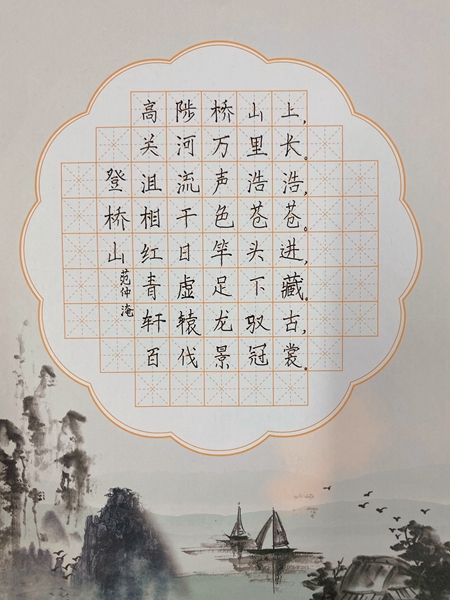 登桥山
范仲淹
高陟桥山上,
关河万里长。
沮流声浩浩,
相干色苍苍。
红日竿头进,
青虚足下藏。
轩辕龙驭古,
百代景冠裳。